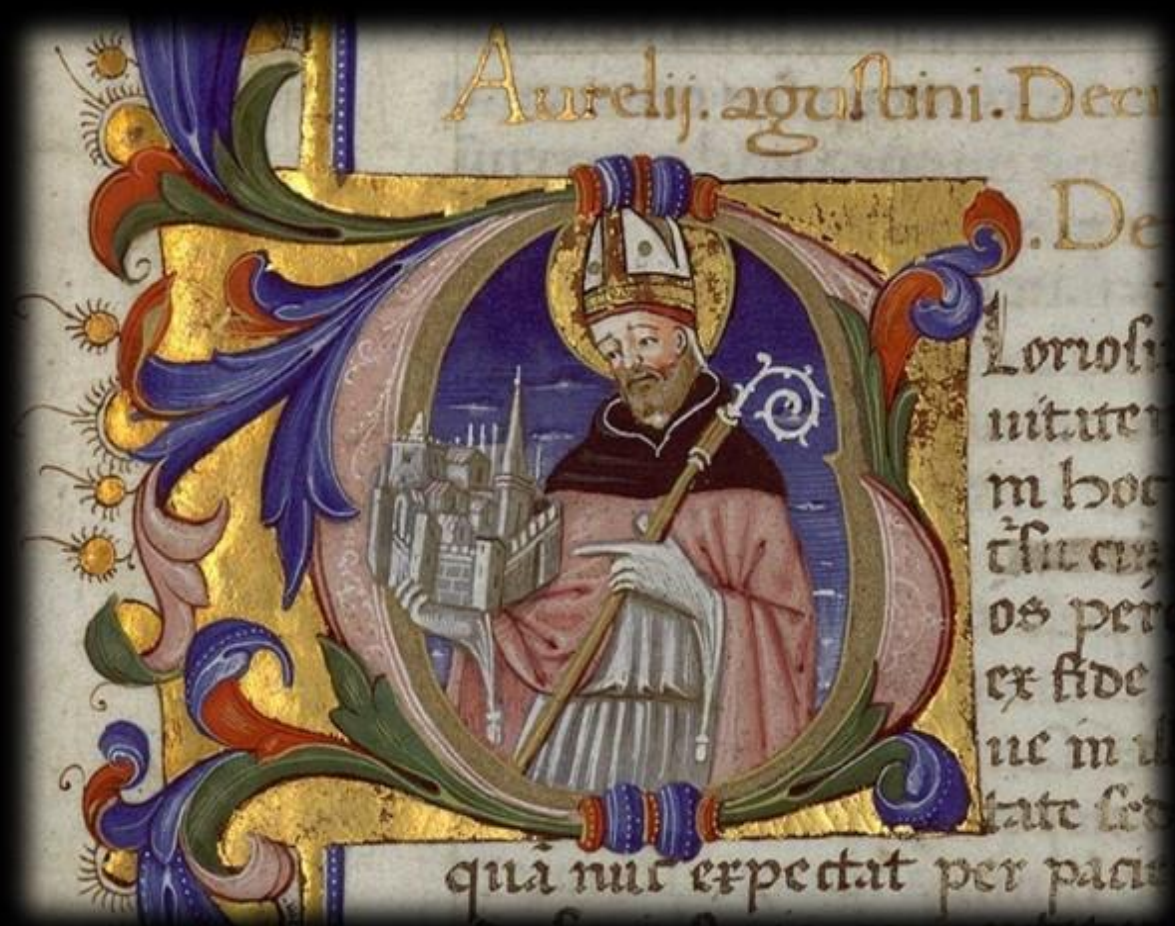 Aurelij. agustini. Deci
. De
G
Loriosi
uitate
in hoc
os per
ex fide
ue in
tate sed
quā nūc expectat per pacie